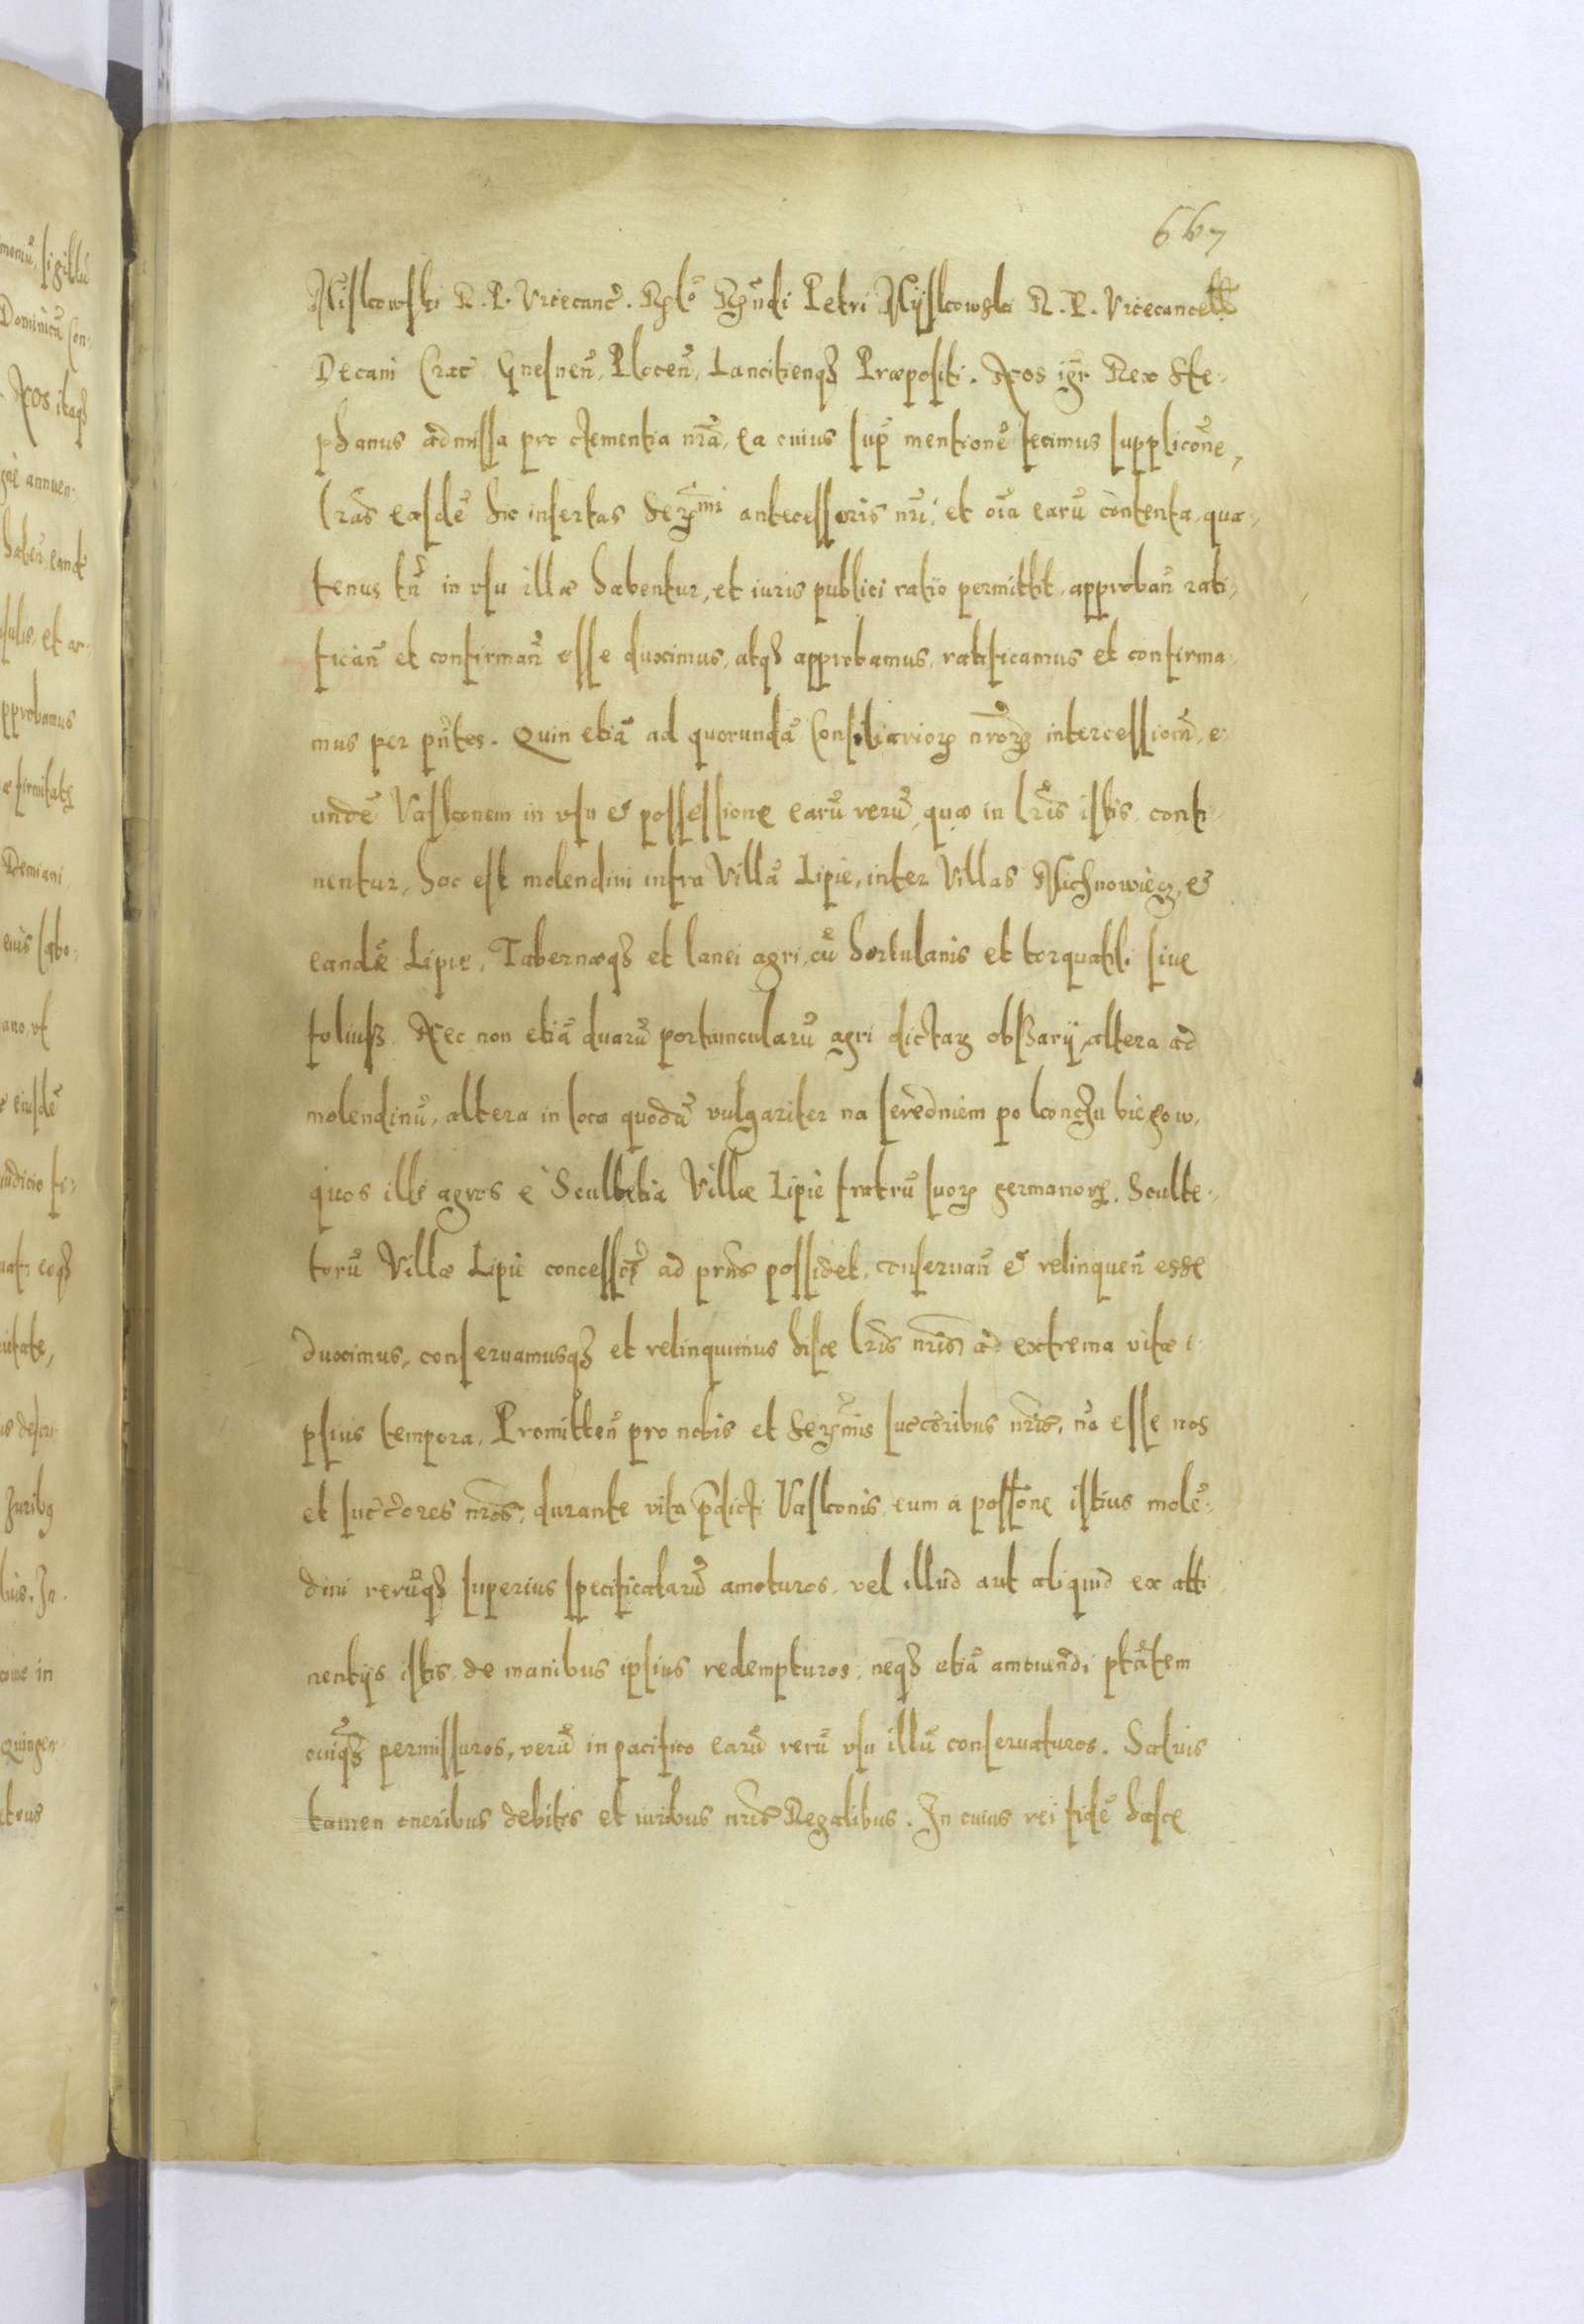 667
Miskowski R. P. Vicecanc̃. Rela͠o R̃ndi Petri Myskowski R. P. Vicecancell
Decani Crac̃. Gnesneñ, Ploceñ, Lanciciensqȝ Præpositi. Nos igr̃ Rex Ste-
phanus admissa pro clementia nr̃a, ea cuius sup̃ mentionẽ fecimus supplicõne,
Lr̃as easdẽ hic insertas Serm̃i antecessoris nr̃i, et oĩa earũ contenta, qua-
tenus tñ in vsu illæ habentur, et iuris publici ratio permittit, approbañ rati-
ficañ et confirmañ esse duximus, atqȝ approbamus, ratificamus et confirma
mus per pñtes. Quin etiã ad quorundã Consiliarioꝝ nr̃oꝝ intercessionẽ, e-
undẽ Vaskonem in vsu et possessione earũ rerũ, quæ in lr̃is istis conti
nentur, hoc est molendini infra Villã Lipie, inter Villas Michnowiecz, et
eandẽ Lipie, Tabernæqȝ et lanei agri, cũ hortulanis et torquatili siue
foliusȝ. Nec non etiã duarũ portiuncularũ agri dictaꝝ obszarÿ, altera ad
molendinũ, altera in loco quodã vulgariter na seredniem po konczu biegow,
quos ille agros è Scultetia Villæ Lipie fratrũ suoꝝ germanoꝝ, Sculte-
torũ Villæ Lipie ad pr̃ns possidet, conseruañ et relinqueñ esse
duximus, conseruamusqȝ et relinquimus hisce lr̃is nr̃is ad extrema vitæ i-
psius tempora, Promitteñ pro nobis et Serm̃is succ̃oribus nr̃is, nõ esse nos
et succ̃ores nr̃os, durante vita p̃dicti Vaskonis, eum à poss̃one istius molẽ-
dini rerũqȝ superius specificatarũ amoturos, vel illud aut aliquid ex atti
nentÿs istis de manibus ipsius redempturos, neqȝ etiã amouendi pt̃atem
cuiqȝ permissuros, verũ in pacifico earũ rerũ vsu illũ conseruaturos. Saluis
tamen oneribus debitis et iuribus nr̃is Regalibus. In cuius rei fidẽ hasce